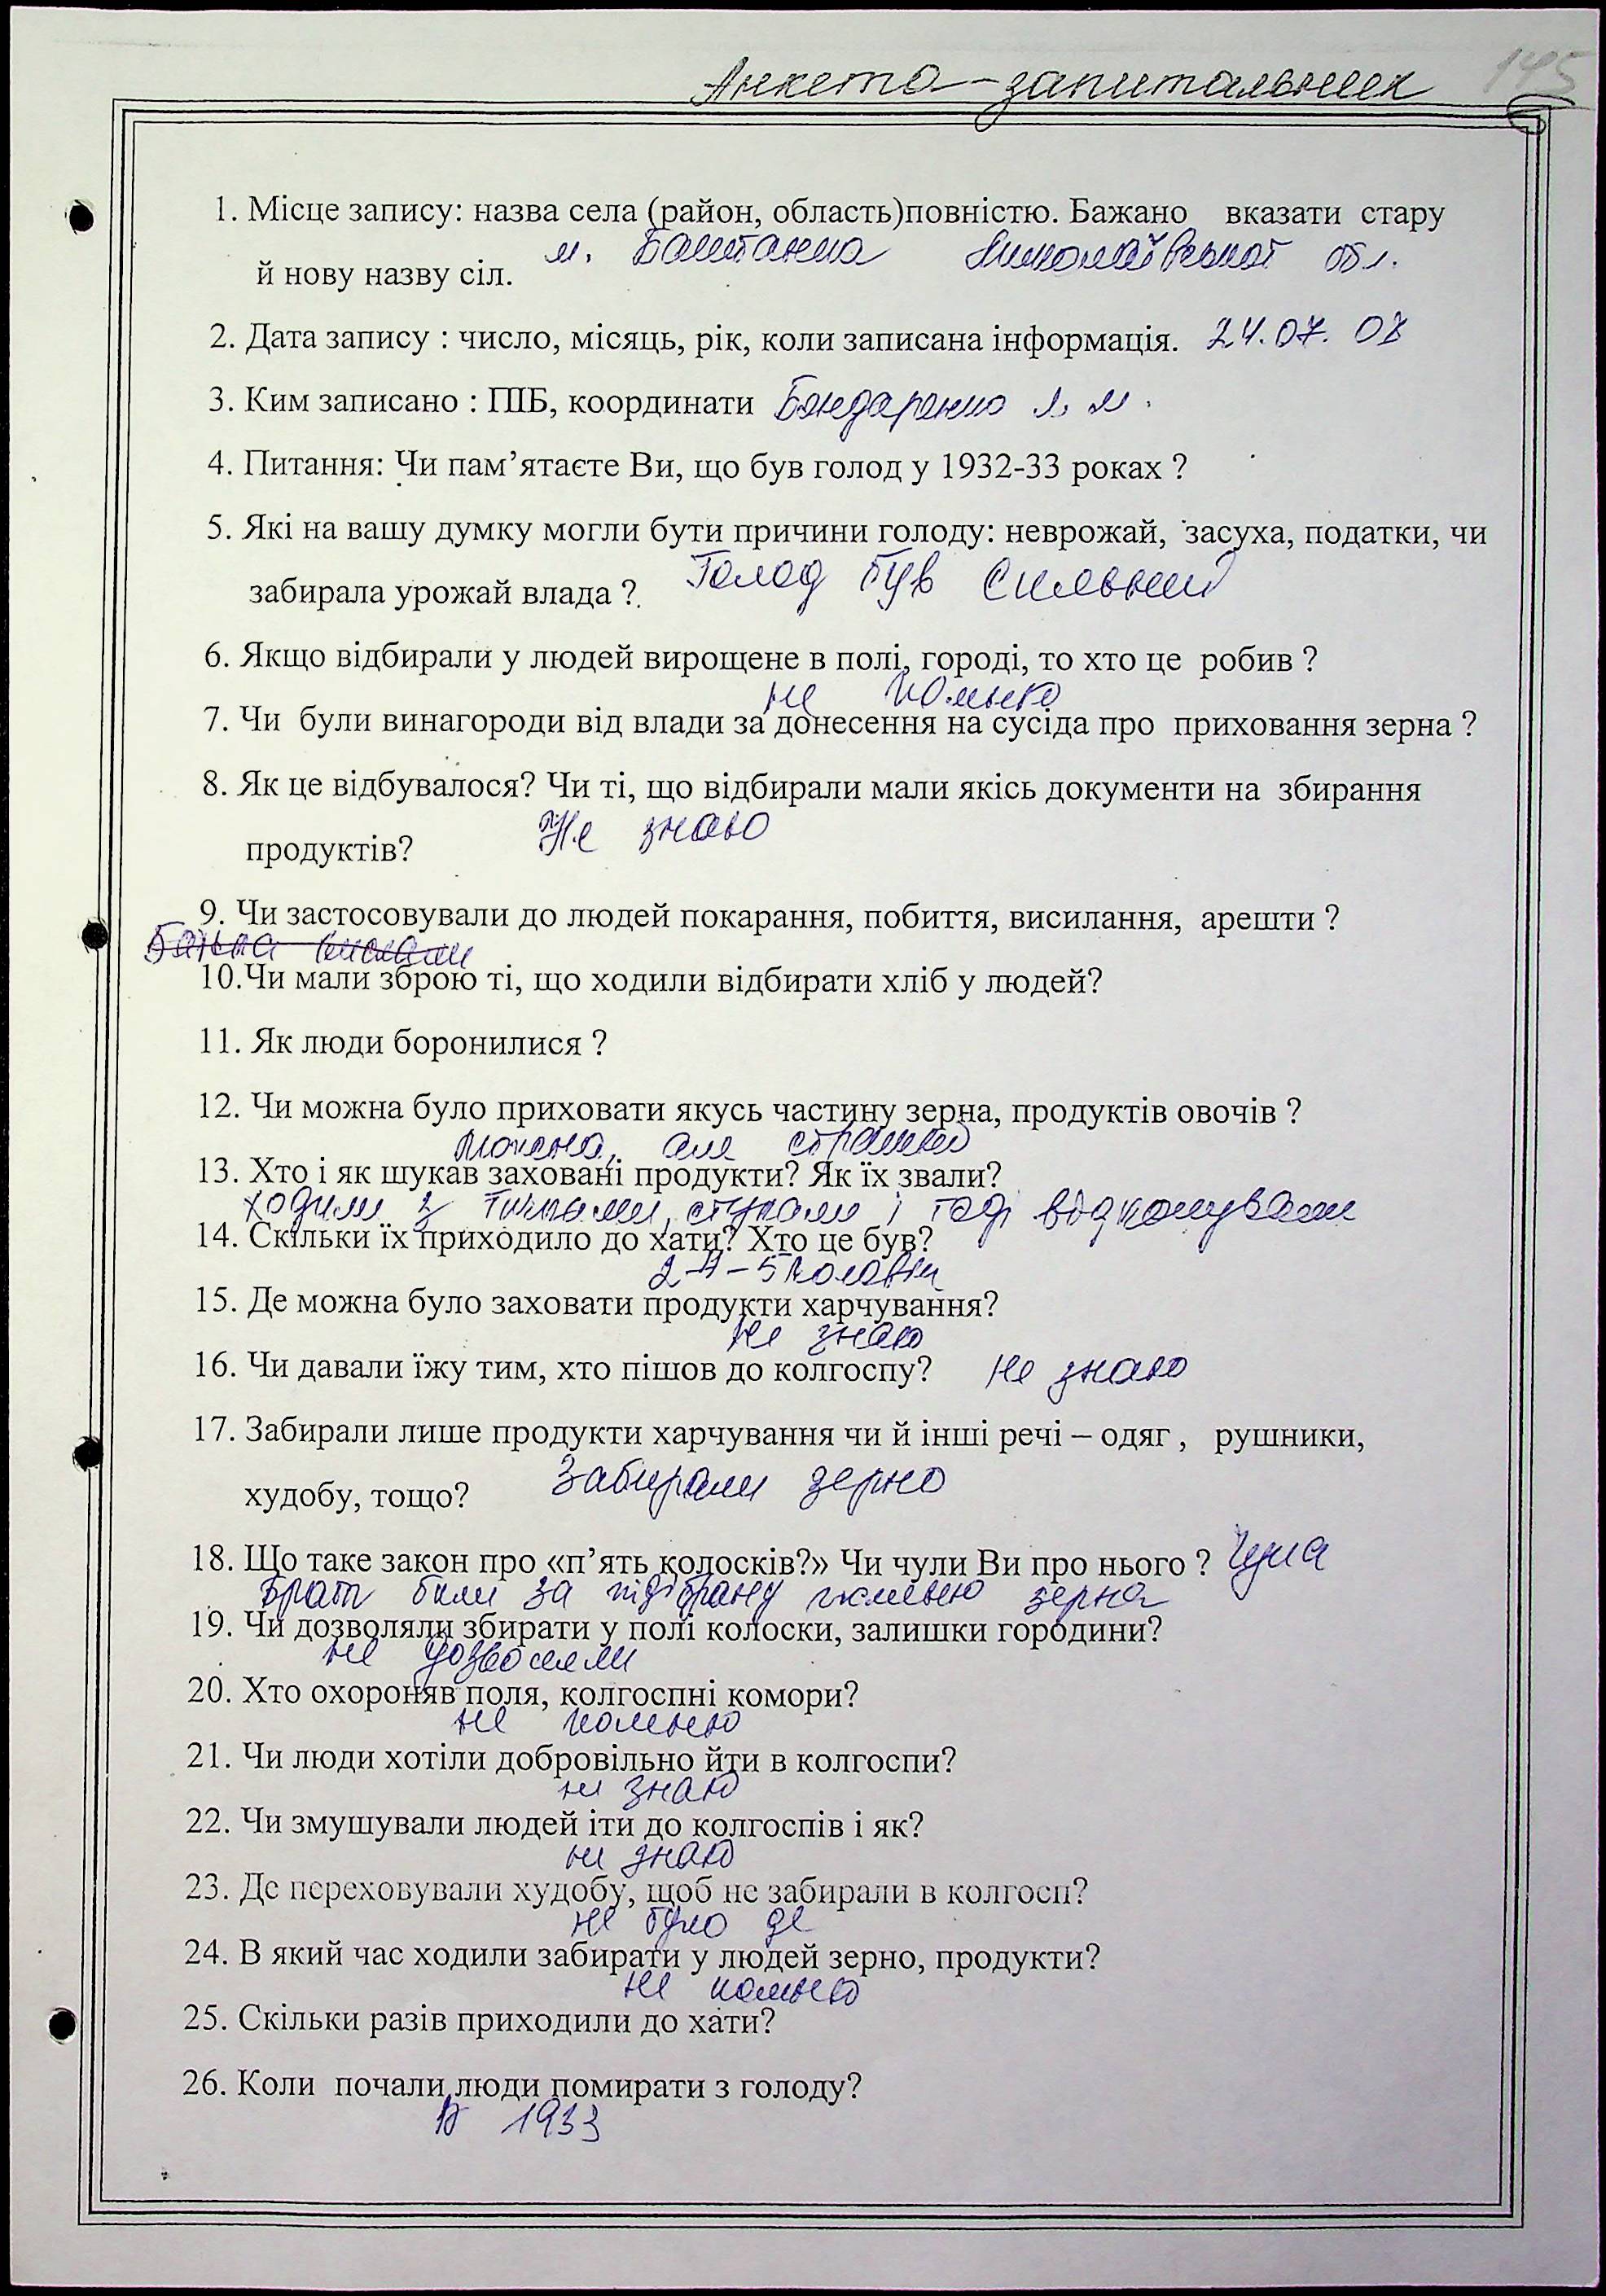 Анкета-запитальник 145
1. Місце запису: назва села (район, область)повністю. Бажано вказати стару
м. Баштанка Миколаївської обл.
й нову назву сіл.
2. Дата запису : число, місяць, рік, коли записана інформація. 24.07.08
3. Ким записано : ПІБ, координати Бондаренко Л. М.
4. Питання: Чи пам’ятаєте Ви, що був голод у 1932-33 роках ?
5. Які на вашу думку могли бути причини голоду: неврожай, засуха, податки, чи
забирала урожай влада ? Голод був сильний
6. Якщо відбирали у людей вирощене в полі, городі, то хто це робив ?
не помню
7. Чи були винагороди від влади за донесення на сусіда про приховання зерна ?
8. Як це відбувалося? Чи ті, що відбирали мали якісь документи на збирання
продуктів? Не знаю
9. Чи застосовували до людей покарання, побиття, висилання, арешти ?
10.Чи мали зброю ті, що ходили відбирати хліб у людей?
11. Як люди боронилися ?
12. Чи можна було приховати якусь частину зерна, продуктів овочів ?
Можна, але страшно
13. Хто і як шукав заховані продукти? Як їх звали?
ходили з тичками, стукали і тоді відкопували
14. Скільки їх приходило до хати? Хто це був?
2-4-5 чоловік
15. Де можна було заховати продукти харчування?
Не знаю
16. Чи давали їжу тим, хто пішов до колгоспу? Не знаю
17. Забирали лише продукти харчування чи й інші речі – одяг , рушники,
худобу, тощо? Забирали зерно
18. Що таке закон про «п’ять колосків?» Чи чули Ви про нього ? Чула
Брати били за підібрану жменю зерна
19. Чи дозволяли збирати у полі колоски, залишки городини?
не дозволяли
20. Хто охороняв поля, колгоспні комори?
не помню
21. Чи люди хотіли добровільно йти в колгоспи?
не знаю
22. Чи змушували людей іти до колгоспів і як?
не знаю
23. Де переховували худобу, щоб не забирали в колгосп?
не було де
24. В який час ходили забирати у людей зерно, продукти?
не помню
25. Скільки разів приходили до хати?
26. Коли почали люди помирати з голоду?
В 1933